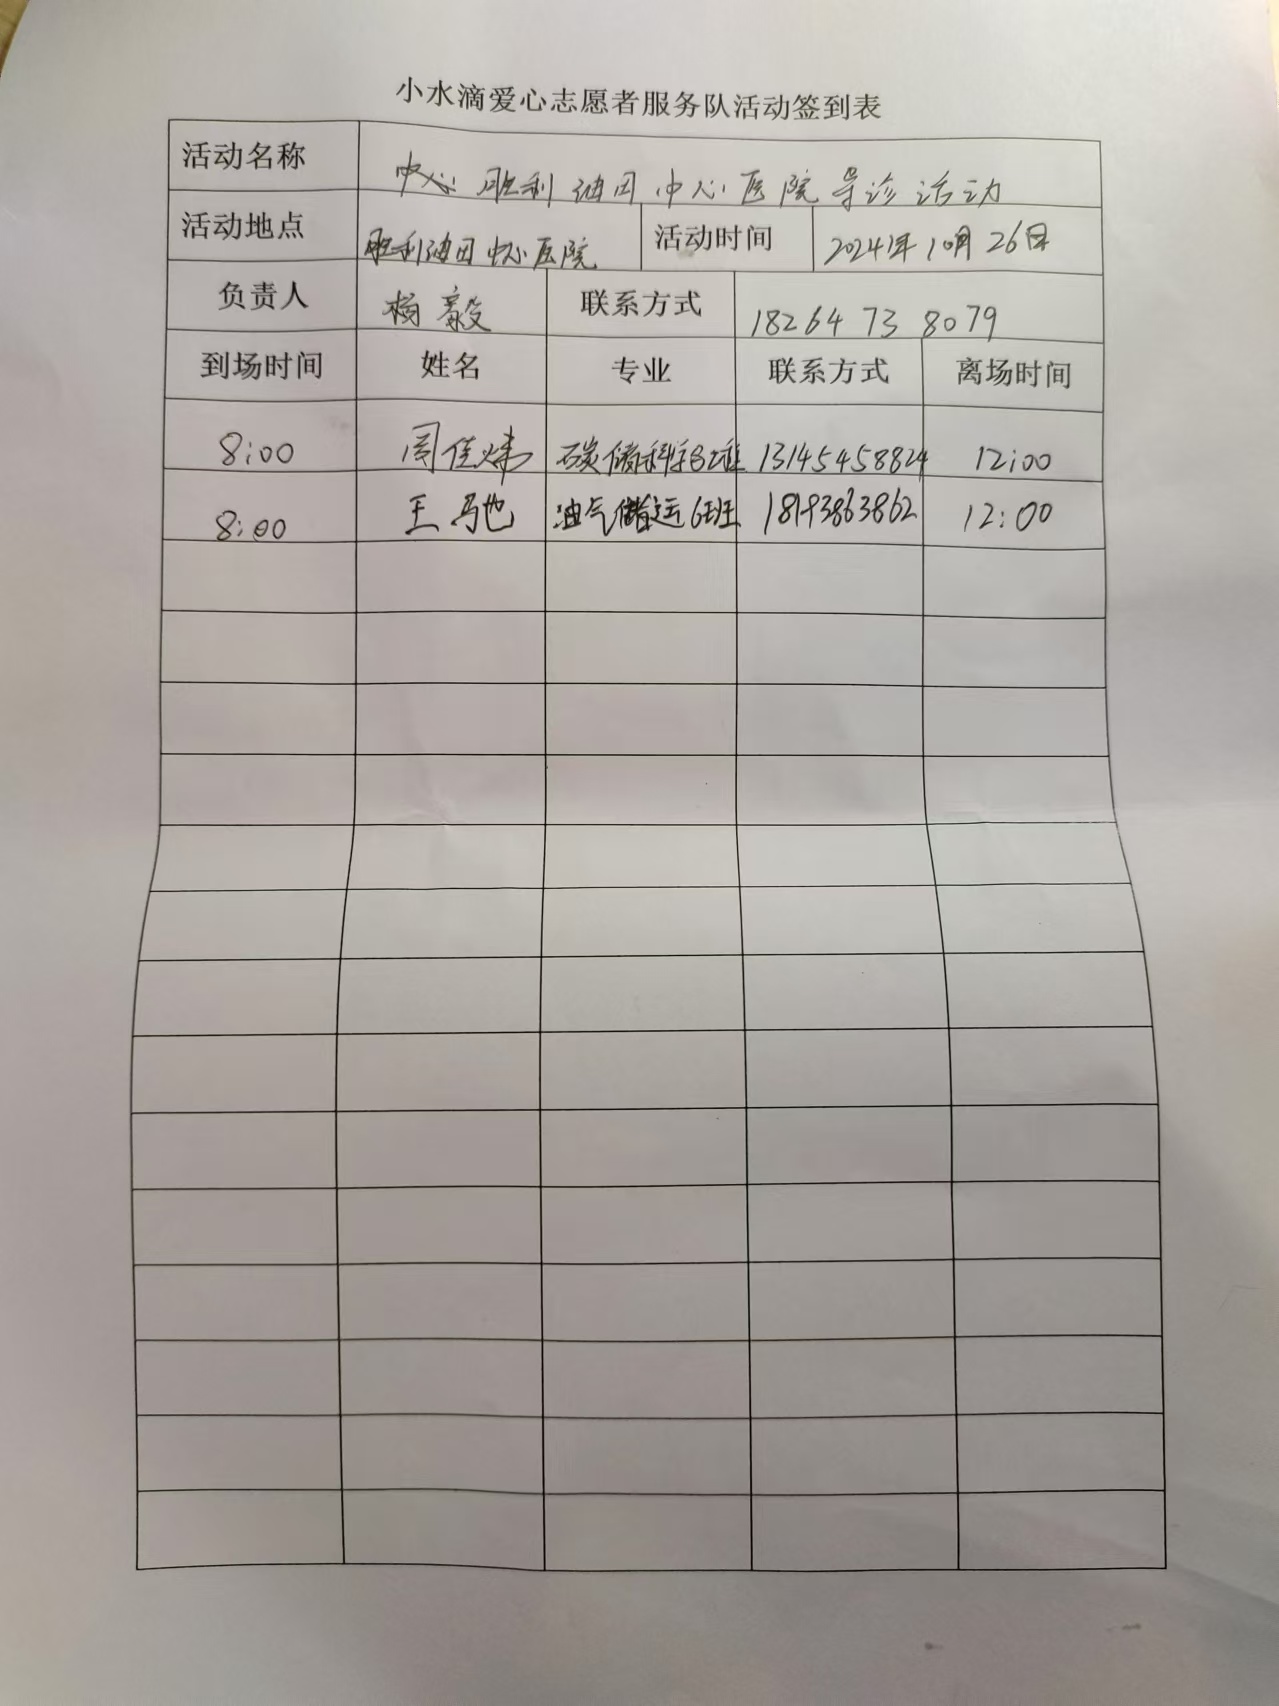 小水滴爱心志愿者服务队活动签到表
活动名称 中心胜利油田中心医院导诊活动
活动地点 胜利油田中心医院 活动时间 2024年10月26日
负责人 杨毅 联系方式 18264738079
到场时间 姓名 专业 联系方式 离场时间
8:00 周佳炜 碳储科学2班 13145458824 12:00
8:00 王驰 油气储运6班 18193863862 12:00